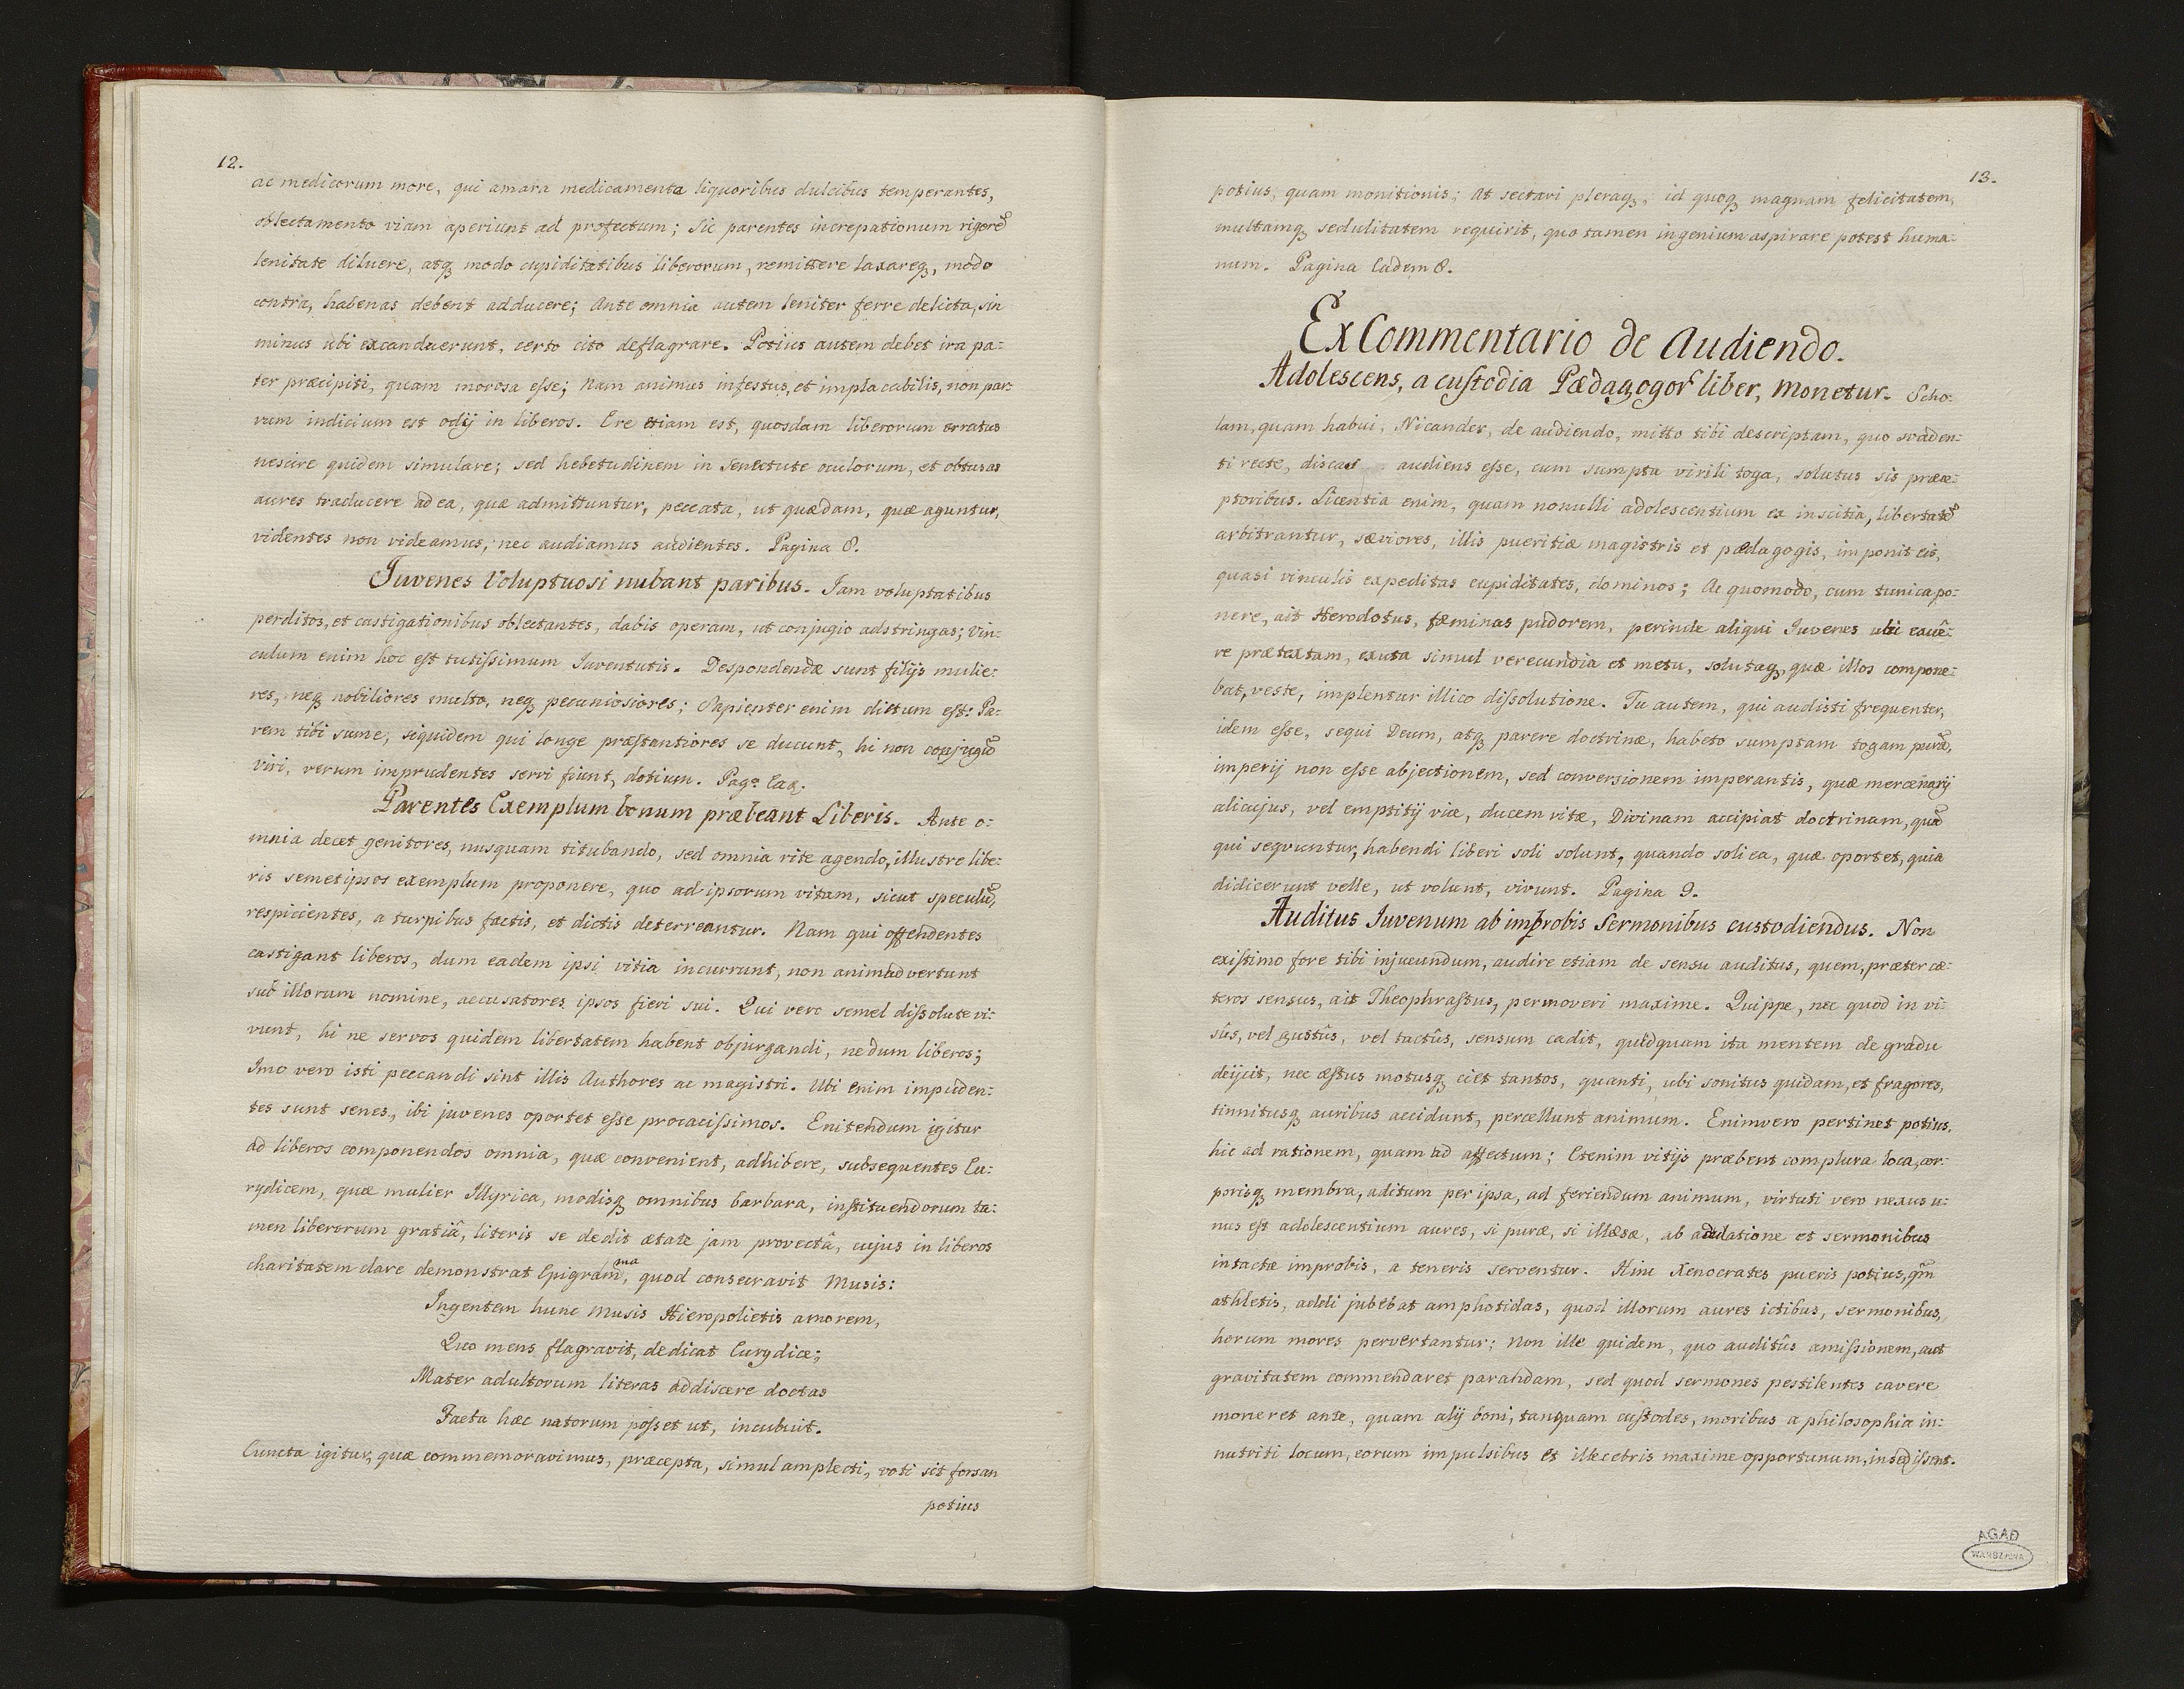 12.
ac medicorum more, qui amara medicamenta liquoribus dulcibus temperantes,
oblectamento viam aperiunt ad profectum; Sic parentes increpationum rigorẽ
lenitate diluere, atq modo cupiditatibus liberorum, remittere laxareq, modo
contra, habenas debent adducere; Ante omnia autem leniter ferre delicta, sin
minus ubi excanduerunt, certo cito deflagrare. Potius autem debet ira pa=
ter præcipiti, quam morosa esse; Nam animus infestus, et implacabilis, non par=
vum indicium est odij in liberos. Ere etiam est, quosdam liberorum erratus
nescire quidem simulare; sed hebetudinem in Senectute oculorum, et obtusas
aures traducere ad ea, quæ admittuntur, peccata, ut quædam, quæ aguntur,
videntes non videamus, nec audiamus audientes. Pagina 8.
Juvenes Voluptuosi nubant paribus. Jam voluptatibus
perditos, et castigationibus oblectantes, dabis operam, ut conjugio adstringas; Vin=
culum enim hoc est tutissimum Juventutis. Despondendæ sunt filijs mulie=
res, neq nobiliores multo, neq pecuniosiores; Sapienter enim dictum est: Pa=
rem tibi sume; siquidem qui longe præstantiores se ducunt, hi non conjugũ
viri, verum imprudentes servi fiunt, dotium. Pagᵃ Ead.
Parentes Exemplum bonum præbeant Liberis. Ante o=
mnia decet genitores, nusquam titubando, sed omnia rite agendo, illustre libe=
ris semetipsos exemplum proponere, quo ad ipsorum vitam, sicut speculũ,
respicientes, a turpibus factis, et dictis deterreantur. Nam qui offendentes
castigant liberos, dum eadem ipsi vitia incurrunt, non animadvertunt
sub illorum nomine, accusatores ipsos fieri sui. Qui vero semel dissolute vi=
vunt, hi ne servos quidem libertatem habent objurgandi, nedum liberos;
Imo vero isti peccandi sint illis Authores ac magistri. Ubi enim impuden=
tes sunt senes, ibi juvenes oportet esse procacissimos. Enitendum igitur
ad liberos componendos omnia, quæ convenient, adhibere, subsequentes Eu=
rydicem, quæ mulier Illyrica, modisq omnibus barbara, instituendorum ta=
men liberorum gratiâ, literis se dedit ætate jam provectâ, cujus in liberos
charitatem clare demonstrat Epigramma, quod consecravit Musis:
Ingentem hunc Musis Hieropolietis amorem,
Quo mens flagravit, dedicat Eurydice;
Mater adultorum literas addiscere doctas
Facta hæc natorum posset ut, incubuit.
Cuncta igitur, quæ commemoravimus, præcepta, simul amplecti, voti sit forsan
potius
13.
potius, quam monitionis; At sectari pleraq, id quoq magnam felicitatem,
multamq sedulitatem requirit, quo tamen ingenium aspirare potest huma=
num. Pagina Eadem 8.
Ex Commentario de Audiendo.
Adolescens, a custodia Pædagogor liber, Monetur. Scho=
lam, quam habui, Nicander, de audiendo, mitto tibi descriptam, quo svaden=
ti recte, discas audiens esse, cum sumpta virili toga, solutus sis præce=
ptoribus. Licentia enim, quam nonulli adolescentium ex inscitia, libertatẽ
arbitrantur, sæviores, illis pueritiæ magistris et pædagogis, imponit eis,
quasi vinculis expeditas cupiditates, dominos; Ac quomodo, cum tunica po=
nere, ait Herodotus, fæminas pudorem, perinde aliqui Juvenes ubi exuê=
re prætextam, exuta simul verecundia et metu, solutaq, quæ illos compone=
bat, veste, implentur illico dissolutione. Tu autem, qui audisti frequenter,
idem esse, sequi Deum, atq parere doctrinæ, habeto sumptam togam purã,
imperij non esse abjectionem, sed conversionem imperantis, quæ mercenarij
alicujus, vel emptitij vice, ducem vitæ, Divinam accipiat doctrinam, quã
qui sequuntur, habendi liberi soli solunt, quando soli ea, quæ oportet, quia
didicerunt velle, ut volunt, vivunt. Pagina 9.
Auditus Juvenum ab improbis Sermonibus custodiendus. Non
existimo fore tibi injucundum, audire etiam de sensu auditus, quem, præter cæ=
teros sensus, ait Theophrastus, permoveri maxime. Quippe, nec quod in vi=
sûs, vel gustûs, vel tactûs, sensum cadit, quidquam ita mentem de gradu
deijcit, nec æstus motusq ciet tantos, quanti, ubi sonitus quidam, et fragores,
tinnitusq auribus accidunt, percellunt animum. Enimvero pertinet potius,
hic ad rationem, quam ad affectum; Etenim vitijs præbent complura loca, cor=
porisq membra, aditum per ipsa, ad feriendum animum, virtuti vero nexus u=
nus est adolescentium aures, si puræ, si illæsæ, ab adulatione et sermonibus
intactæ improbis, a teneris serventur. Hinc Xenocrates pueris potius, qm̃
athletis, addi jubebat amphotidas, quod illorum aures ictibus, sermonibus,
horum mores pervertantur; Non ille quidem, quo auditûs amissionem, aut
gravitatem commendaret parandam, sed quod sermones pestilentes cavere
moneret ante, quam alij boni, tanquam custodes, moribus a philosophia in=
nutriti locum, eorum impulsibus et illecebris maxime opportunum, insedissent.
AGAD
WARSZAWA